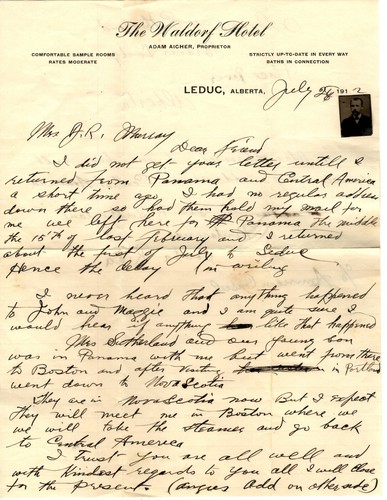 The Waldorf Hotel
ADAM AICHER, PROPRIETOR
COMFORTABLE SAMPLE ROOMS
RATES MODERATE
STRICTLY UP-TO-DATE IN EVERY WAY
BATHS IN CONNECTION
LEDUC, ALBERTA, July 26 1912
Mrs J. R. Murray
Dear friend
I did not get your letter untill I
returned from Panama and Central America
a short time ago I had no regular address
down there so had them hold my mail for
me we left here for Panama the middle
the 15th of last february and I returned
about the first of July to Leduc
Hence the delay in writing
I never heard that anything happened
to John and Maggie and I am quite sure I
would hear if anything like that happened
Mrs Sutherland and our young son
was in Panama with me but went from there
to Boston and after visiting in Portland
went down to Nova Scotia
They are in Nova Scotia now But I expect
they will meet me in Boston where we
we will take the Steamer and go back
to Central America
I trust you are all well and
with kindest regards to you all I will close
for the present (angus add on otherside)